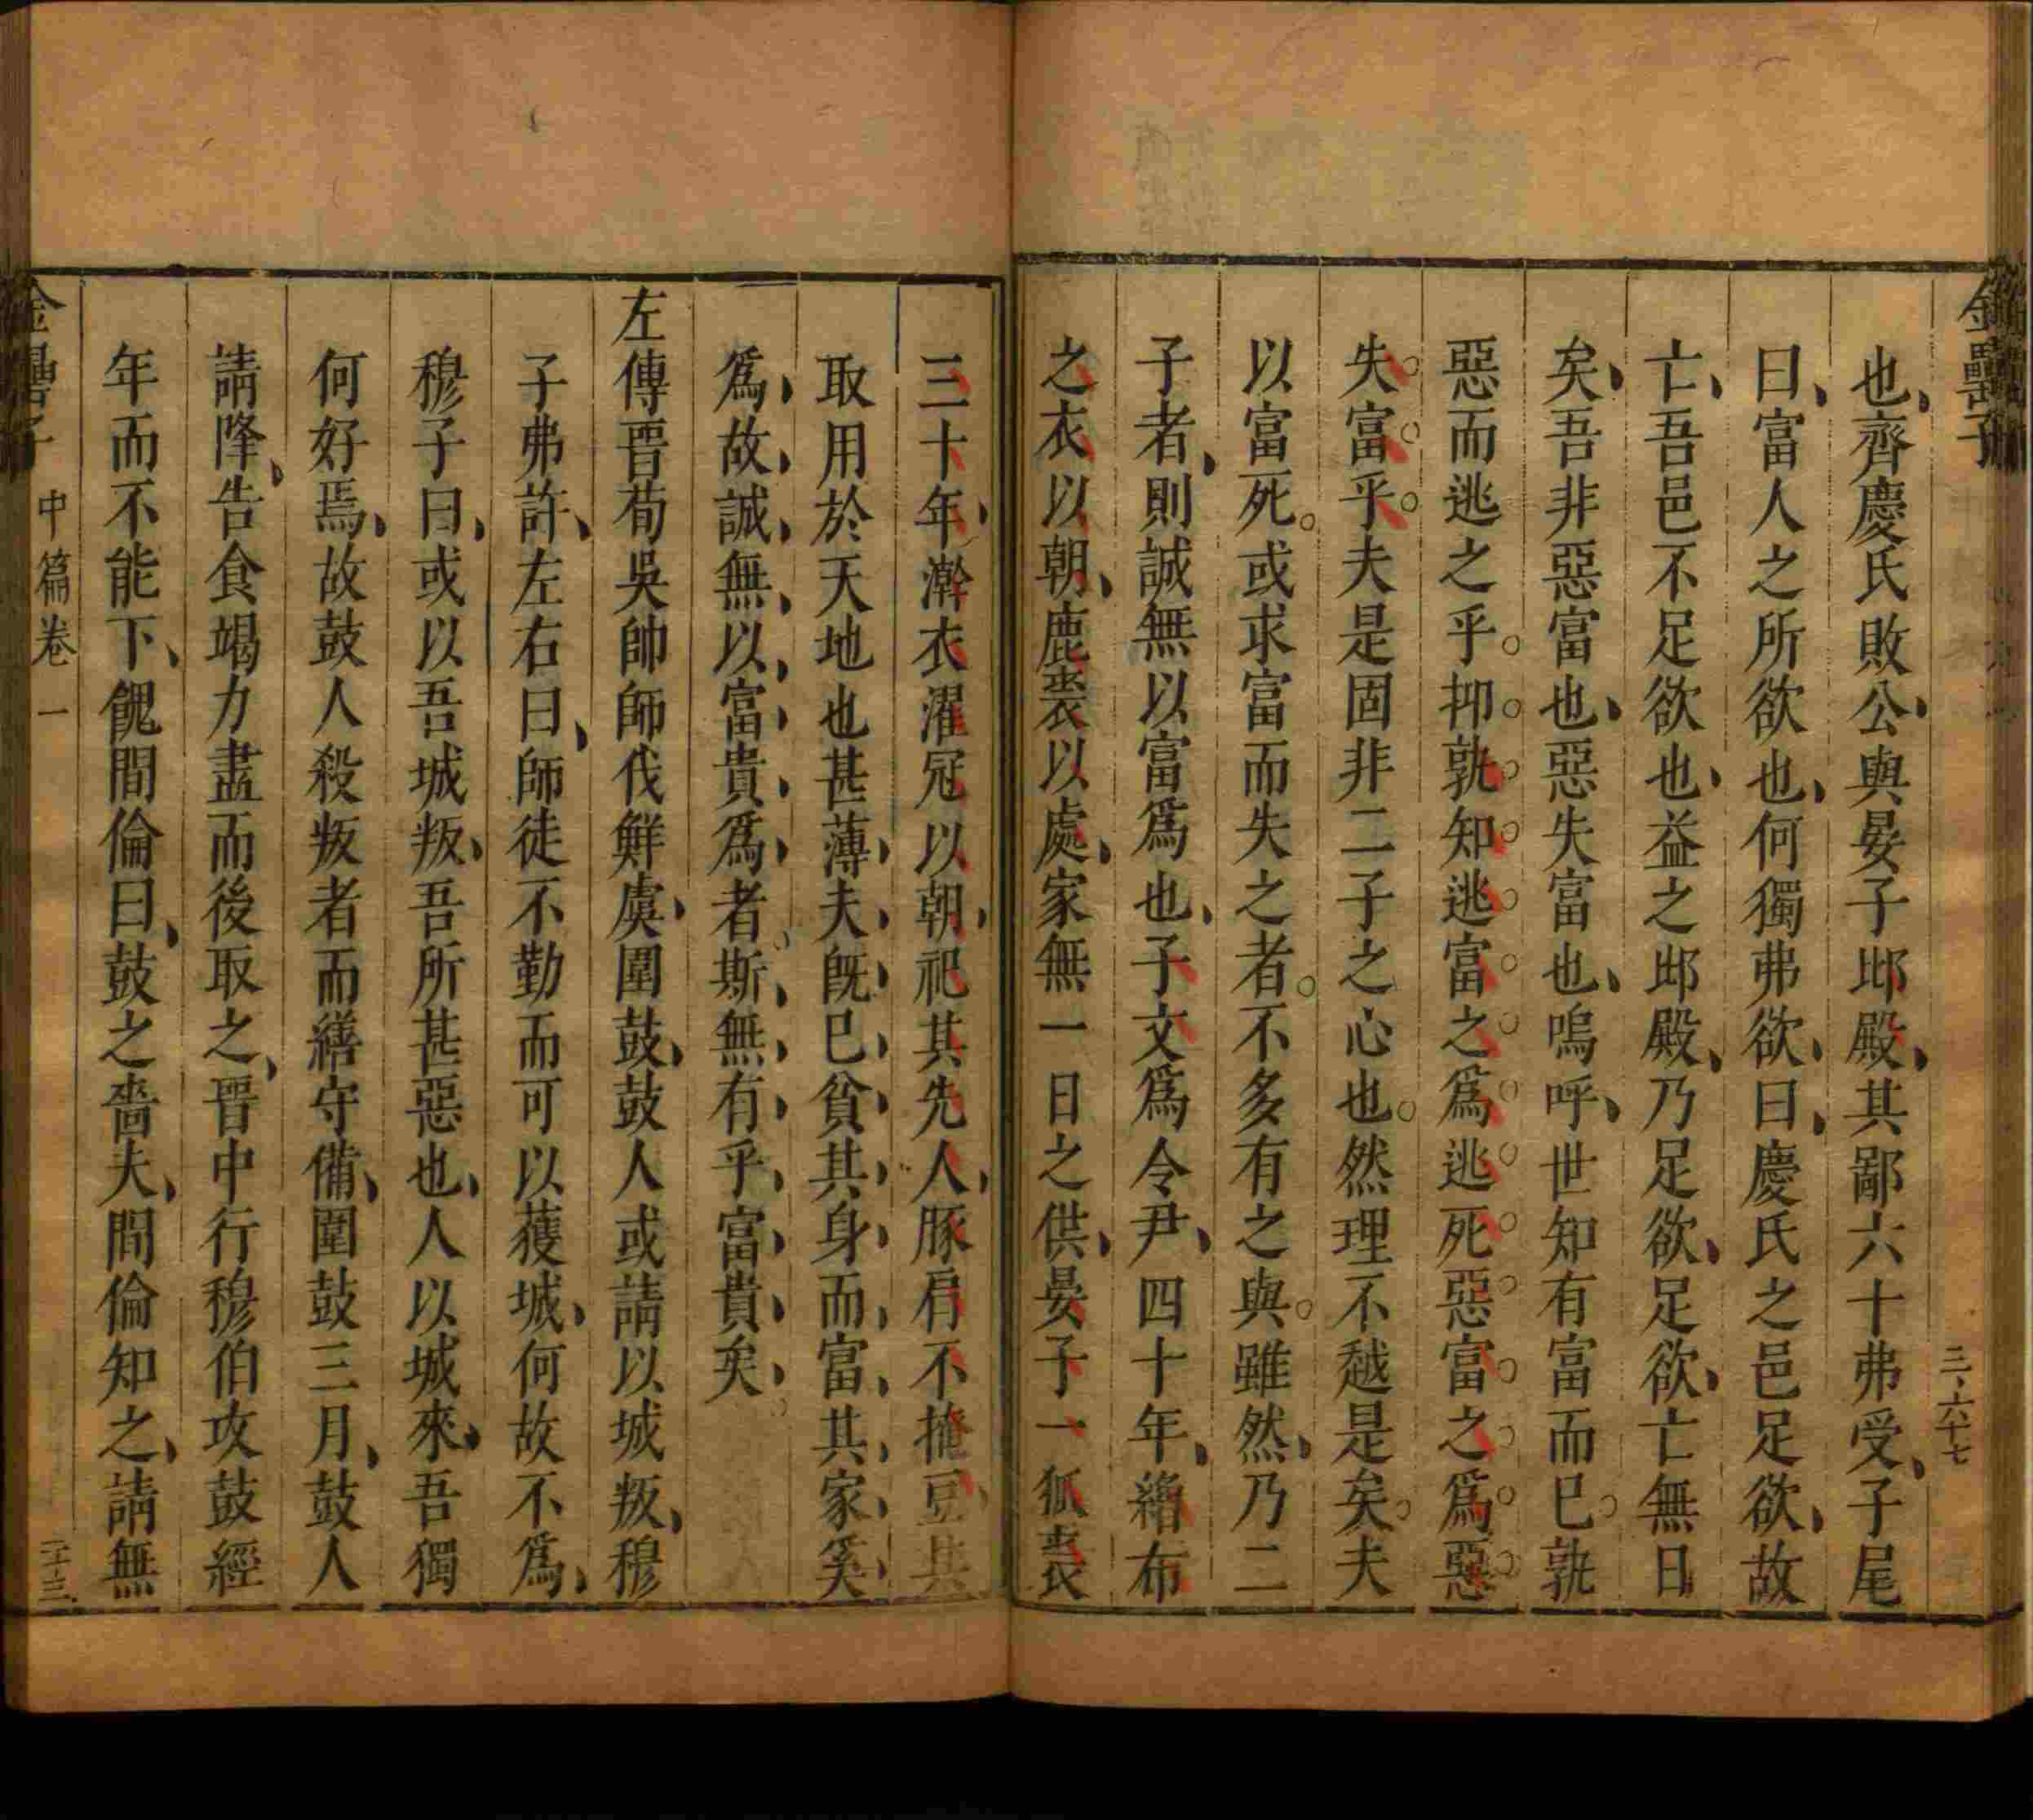 金罍子
三、六十七
也、齊慶氏敗公、與晏子邶殿、其鄙六十弗受、子尾
曰、富人之所欲也、何獨弗欲、曰、慶氏之邑足欲、故
亡、吾邑不足欲也、益之邶殿、乃足欲、足欲、亡無日
矣、吾非惡富也、惡失富也、嗚呼、世知有富而已。孰
惡而逃之乎。抑孰知逃富之爲逃死惡富之爲惡
失富乎。夫是固非二子之心也。然理不越是矣。夫
以富死。或求富而失之者。不多有之與。雖然、乃二
子者、則誠無以富爲也、子文爲令尹、四十年、緇布
之衣以朝、鹿裘以處、家無一日之供、晏子一狐裘
三十年、澣衣濯冠以朝、祀其先人、豚肩不掩豆、其
取用於天地也甚薄、夫、旣、已、貧、其、身、而、富、其、家、奚、
爲、故、誠、無、以、富、貴、爲、者、斯、無、有、乎、富、貴、矣、
左傳晉荀吳帥師伐鮮虞、圍鼓、鼓人或請以城叛、穆
子弗許、左右曰、師徒不勤而可以獲城、何故不爲、
穆子曰、或以吾城叛、吾所甚惡也、人以城來、吾獨
何好焉、故鼓人殺叛者而繕守備、圍鼓三月、鼓人
請降、告食竭力盡而後取之、晉中行穆伯攻鼓經
年而不能下、餽間倫曰、鼓之嗇夫、間倫知之、請無
金罍子
中篇卷一
二十三